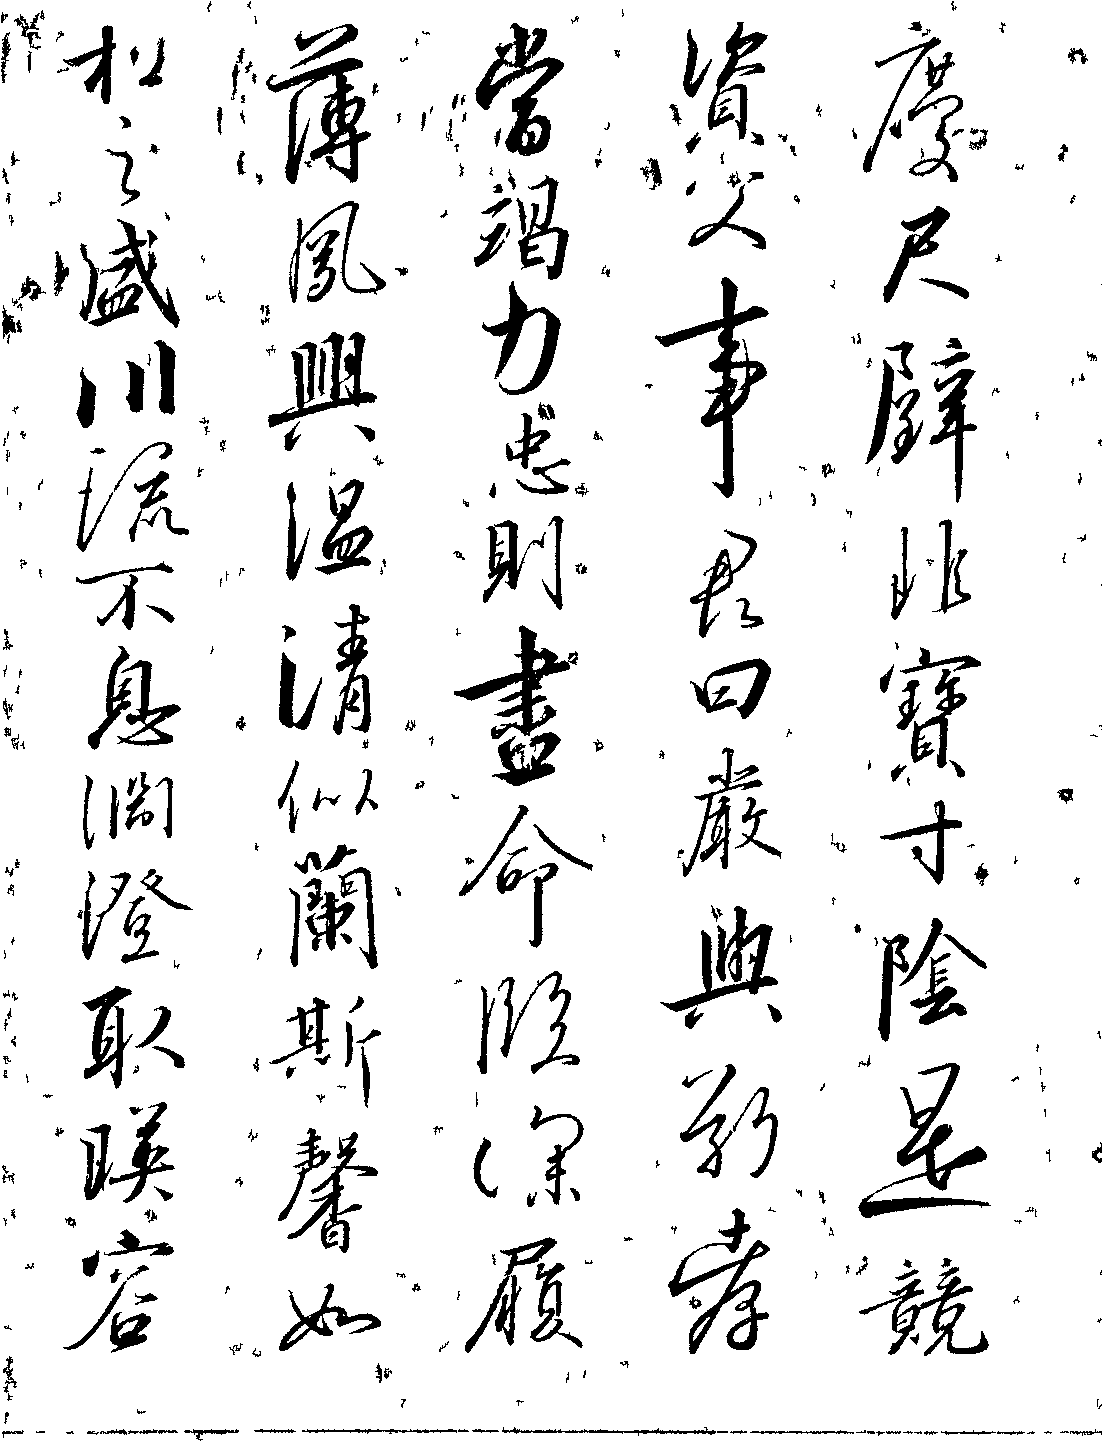 慶尺璧非寶寸陰是競
資父事君曰嚴與敬孝
當竭力忠則盡命臨深履
薄夙興温凊似蘭斯馨如
松之盛川流不息淵澄取暎容